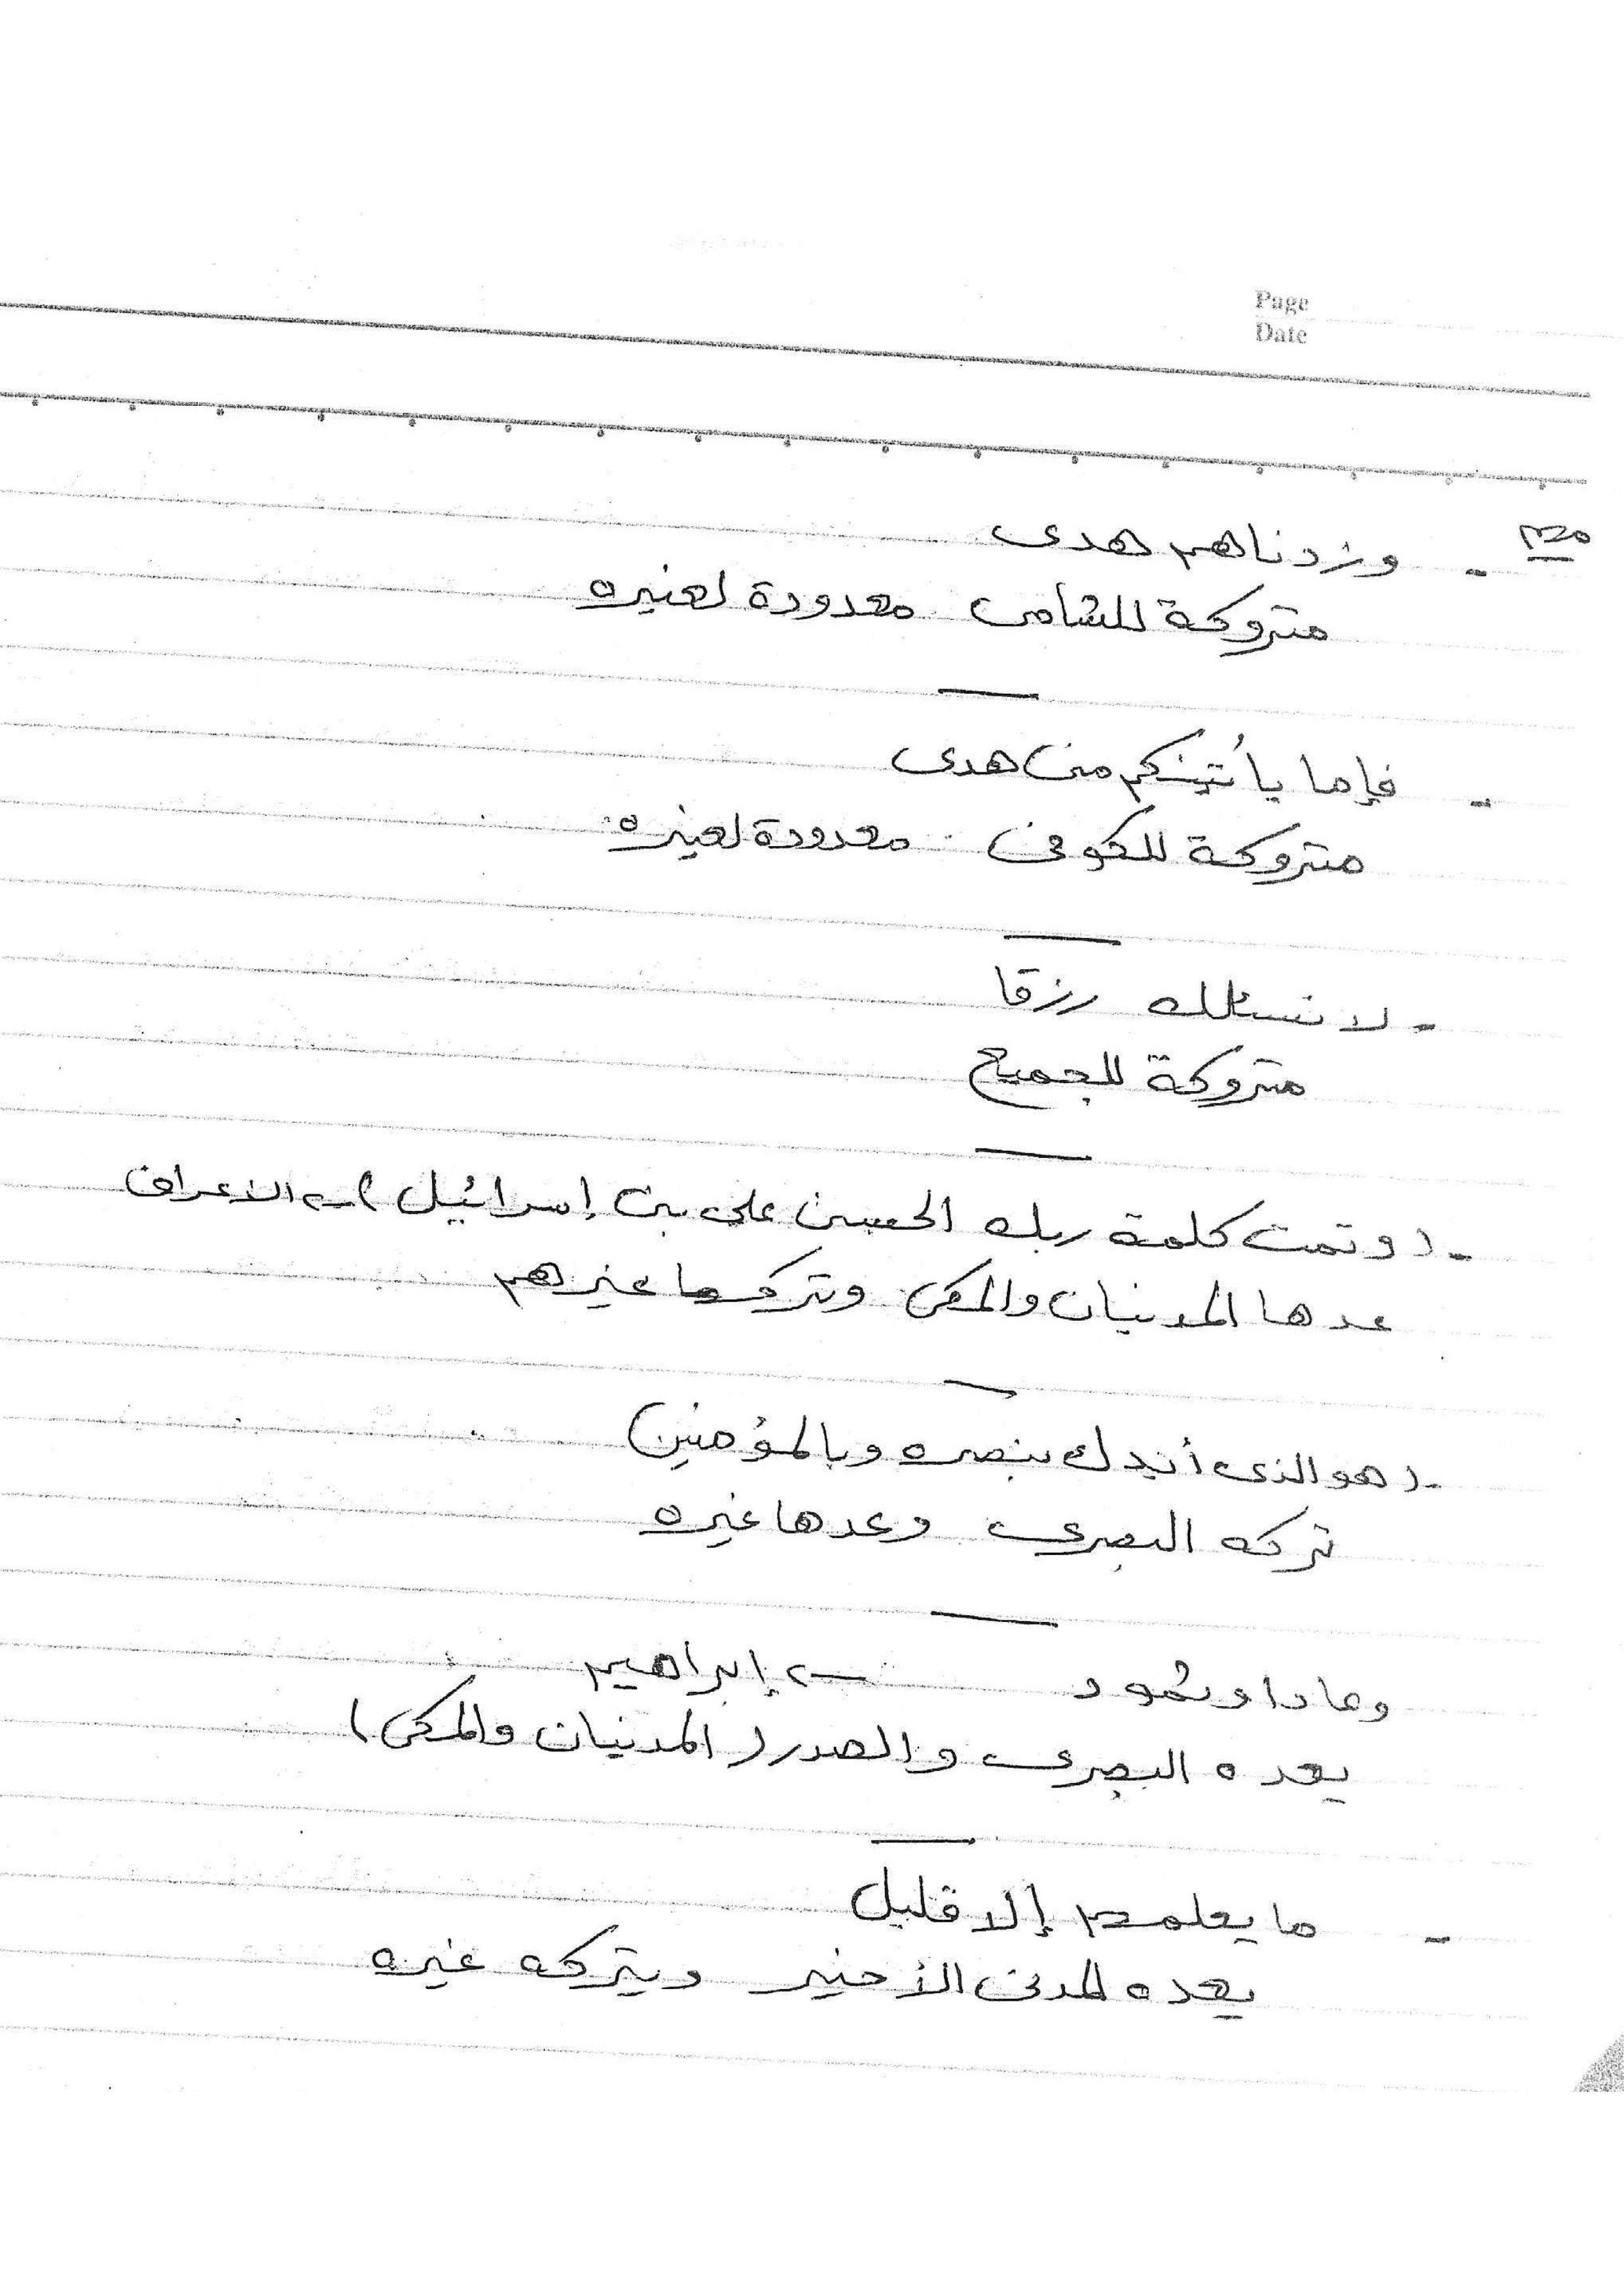 Page
Date
مهم
- وزدناهم هدى
متروكة للشامى معدودة لغيره
- فإما يأتينكم منى هدى
متروكة للكوفى . معدودة لغيره
- لا نسئلك رزقا
متروكة للجميع
- (وتمت كلمة ربك الحسنى على بنى إسرائيل) ← الأعراف
عدها المدنيان والمكى وتركها غيرهم
- (هو الذى أيدك بنصره وبالمؤمنين)
تركه البصرى وعدها غيره
وعاداً وثمود ← إبراهيم
يعده البصرى والصدر (المدنيان والمكى)
- ما يعلمهم إلا قليل
يعده المدنى الأخير ويتركه غيره